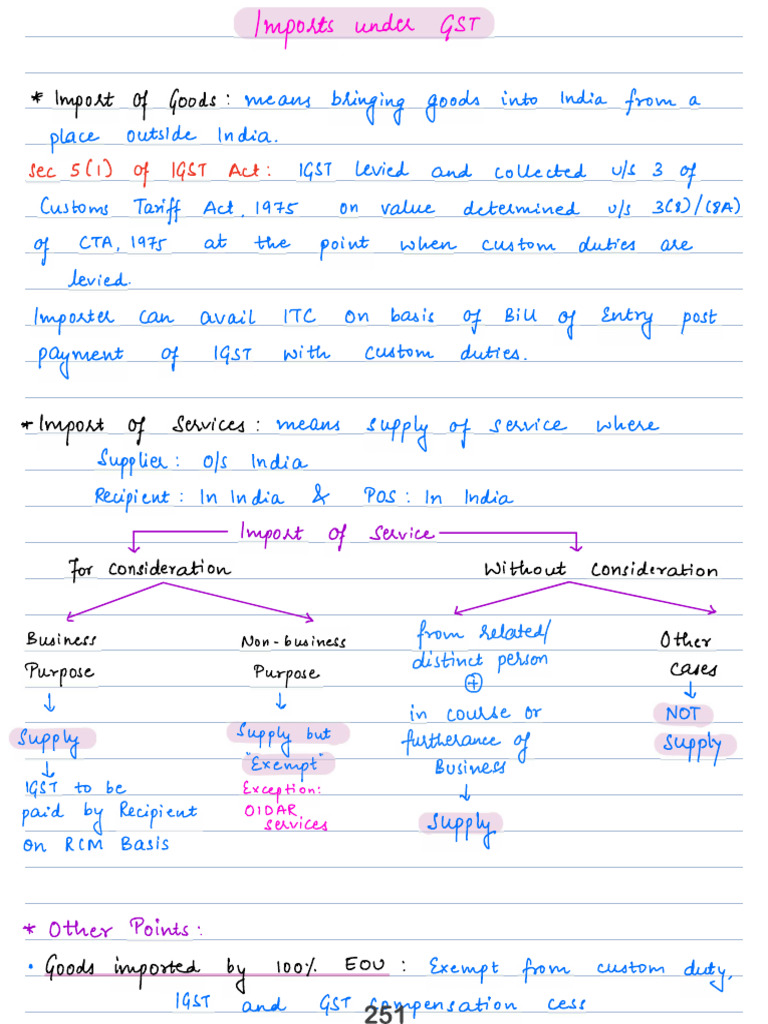 Imports under GST
* Import of Goods: means bringing goods into India from a
place outside India.
Sec 5(1) of IGST Act: IGST levied and collected u/s 3 of
Customs Tariff Act, 1975 on value determined u/s 3(8)/(8A)
of CTA, 1975 at the point when custom duties are
levied.
Importer can avail ITC on basis of Bill of Entry post
payment of IGST with custom duties.
* Import of Services: means supply of service where
Supplier: O/s India
Recipient: In India & POS: In India
Import of Service
For Consideration Without Consideration
Business Purpose
↓
Supply
↓
IGST to be
paid by Recipient
on RCM Basis
Non-business
Purpose
↓
Supply but
"Exempt"
Exception:
OIDAR
Services
from related/
distinct person
⊕
in course or
furtherance of
Business
↓
Supply
Other
cases
↓
NOT
Supply
* Other Points:
• Goods imported by 100% EOU: Exempt from custom duty,
IGST and GST compensation cess
251